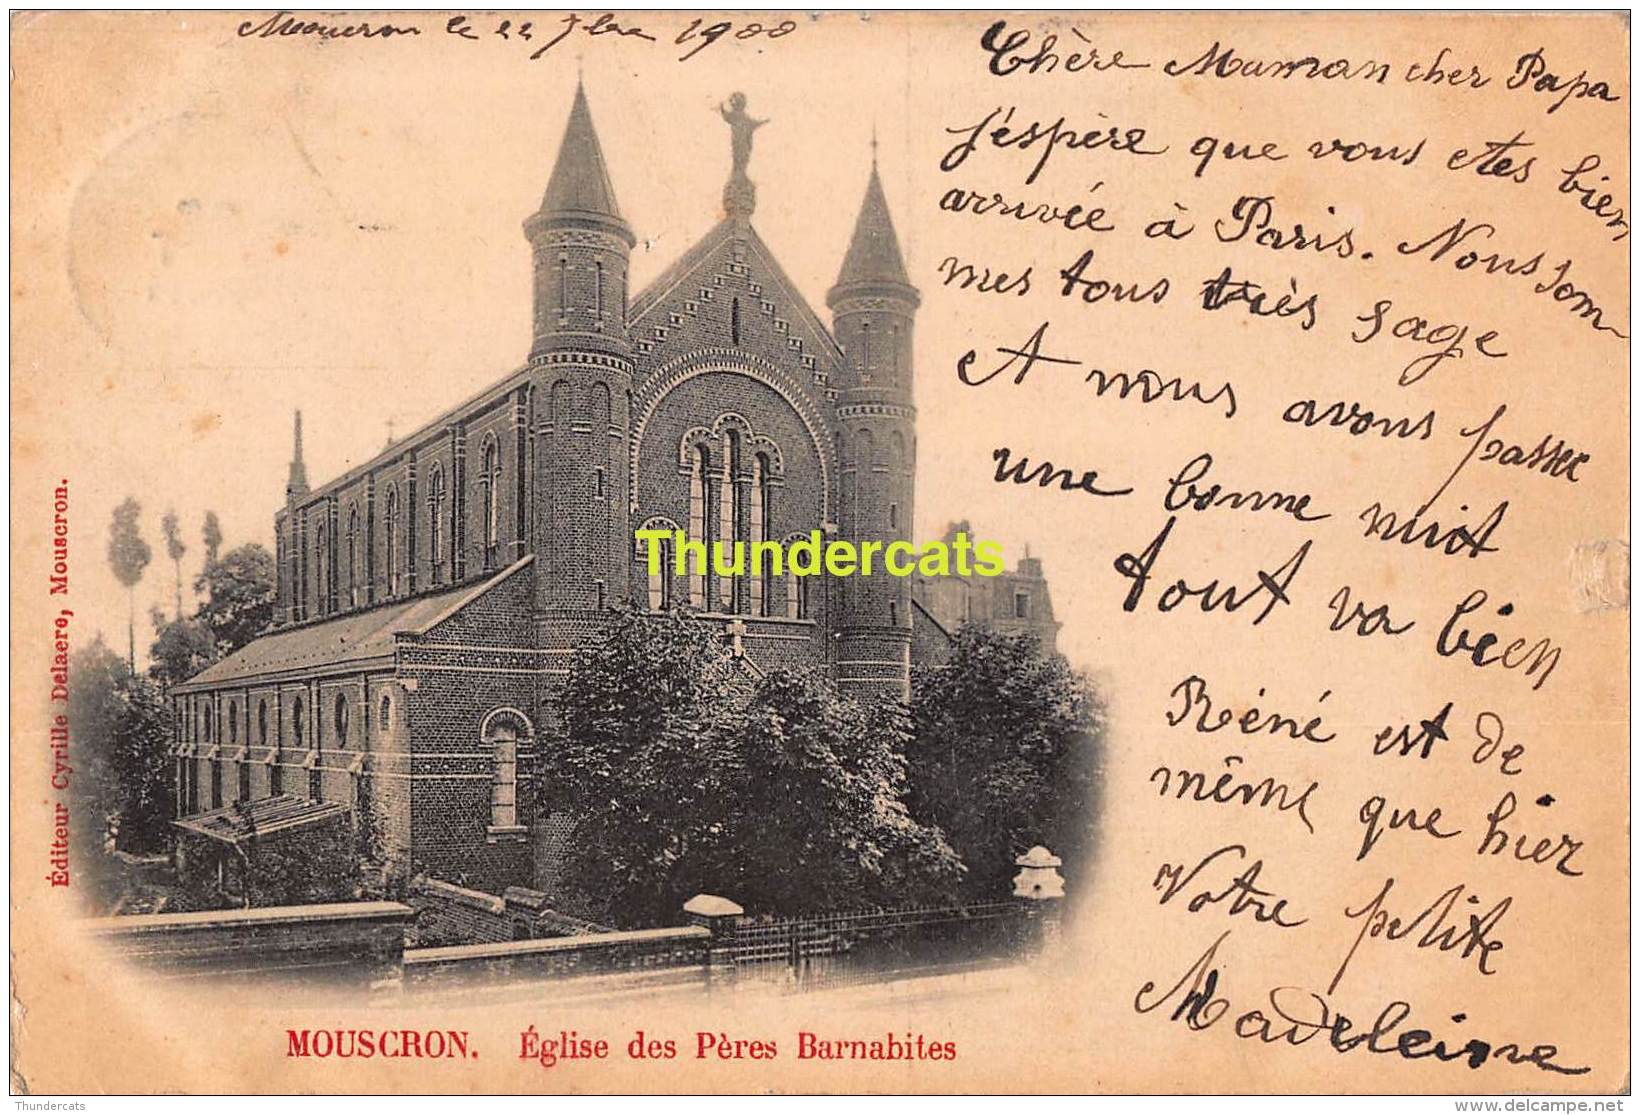 Mouscron le 22 7bre 1900
Chère Maman cher Papa
J'éspère que vous etes bien
arrivée à Paris. Nous som
mes tous très sage
et nous avons passer
une bonne nuit
tout va bien
Réné est de
même que hier
Votre petite
Madeleine
Thundercats
Éditeur Cyrille Delaere, Mouscron.
MOUSCRON. Église des Pères Barnabites
Thundercats
delcampe.net